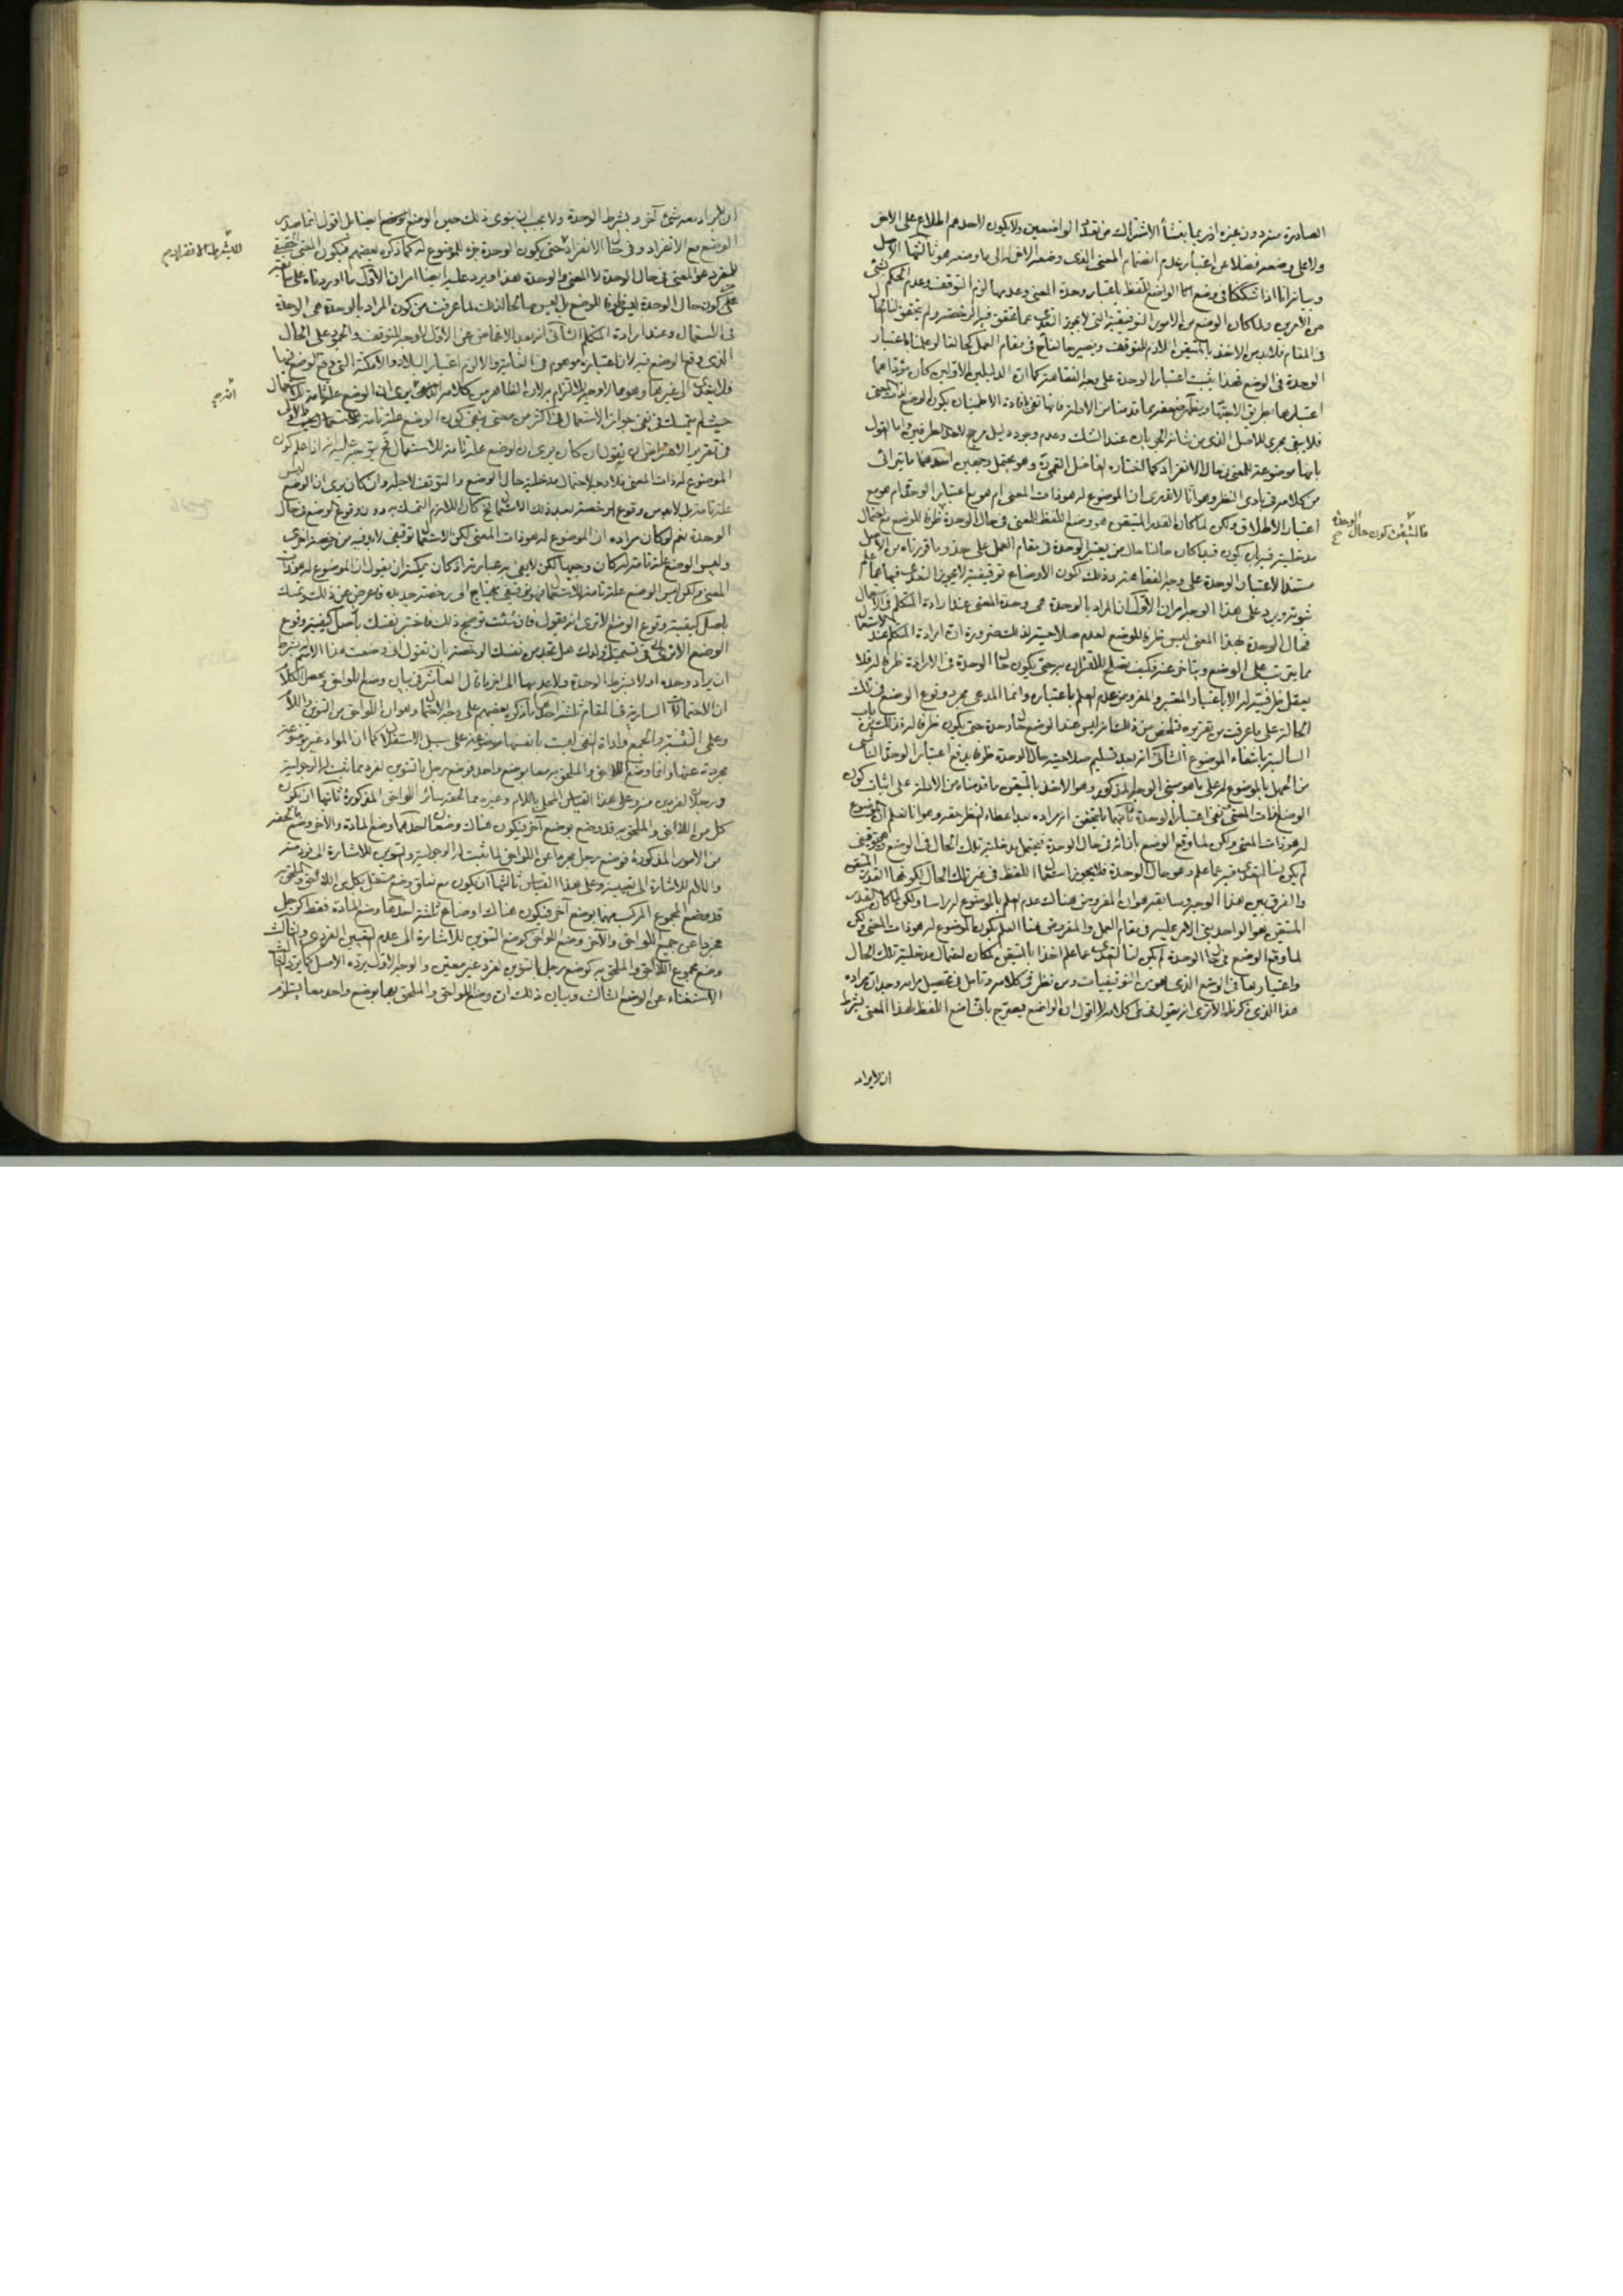 الصادرة منه دون غيره اذ ربما ينشأ الاشتراك من تعدد الواضعين ولا يكون لاحدهم اطلاع على الاخر
ولا على وضعه فضلا عن اعتبار عدم انضمام المعنى الذى وضعه الاخر الى ما وضعه هو ثالثها الاصل
وبيانه انا اذا شككنا فى وضع الواضع اللفظ باعتبار وحدة المعنى وعدمها لزم التوقف وعدم الحكم بشئ
من الامرين ولما كان الوضع من الامور التوقيفية التى لا يجوز التعدى عما تحقق فيه الرخصة ولم يتحقق لنا
فى المقام فلابد من الاخذ بالمتيقن اللازم للتوقف ويصير حالنا فى مقام العمل كحالنا لو علمنا باعتبار
الوحدة فى الوضع فهذا يثبت اعتبار الوحدة على وجه الفقاهة كما ان الدليلين الاولين كان مؤداهما
اعتبارها بطريق الاجتهاد
فلا يبقى مجرى للاصل الذى من شانه الجريان عند الشك وعدم وجود دليل مرجح لاحد الطرفين واما القول
بانها موضوعة للمعنى فى حال الانفراد كما اختاره الفاضل القمى وهو يحتمل وجهين احدهما ما يترائى
من كلامه فى بادى النظر وهو انا لا ندرى ان الموضوع له هو ذات المعنى ام هو مع اعتبار الوحدة ام هو مع
اعتبار الاطلاق ولكن لما كان القدر المتيقن هو وضع اللفظ للمعنى فى حال الوحدة
فالمتيقن كون حال الوحدة
مدخلية فيه بان يكون قيدا كان حالنا حال من يعتبر الوحدة فى مقام العمل على حذو ما قررناه من الاصل
مستندا لاعتبار الوحدة على وجه الفقاهة وذلك لكون الاوضاع توقيفية لا يجوز التعدى فيها عما علم
ثبوته ويرد على هذا الوجه امران الاول ان المراد بالوحدة هى وحدة المعنى عند ارادة المتكلم فى الاستعمال
فحال الوحدة بهذا المعنى ليس ظرفا للوضع لعدم صلاحيته لذلك ضرورة ان ارادة المتكلم عند الاستعمال
مما يترتب على الوضع ويتاخر عنه فكيف يصلح للاقتران به حتى يكون حال الوحدة فى الارادة ظرفا له فلا
يعقل ظرفيته له الا باعتبار المعتبر والمفروض عدم العلم باعتباره وانما المدعى مجرد وقوع الوضع فى تلك
الحالة على ما عرفت من تقريره
السالبة بانتفاء الموضوع الثانى انه بعد تسليم صلاحية حال الوحدة ظرفا يدفع اعتبار الوحدة
من الجهل بالموضوع له على ما هو مبنى الوجه المذكور وهو الاخذ بالمتيقن ما قدمناه من الادلة على اثبات كون
الوضع لذات المعنى نفى اعتبار الوحدة ثانيهما ما يتحقق انه مراده بعد اعطاء النظر حقه وهو انا نعلم ان الموضوع
له هو ذات المعنى ولكن لما وقع الوضع بازائه فى حال الوحدة فيحتمل مدخلية تلك الحال فى الوضع
لم يكن لنا التعدى فيه عما علم وهو حال الوحدة فلا يجوز استعمال اللفظ فى غير تلك الحال لكونها القدر المتيقن
والفرق بين هذا الوجه وسابقه هو ان المفروض هناك عدم العلم بالموضوع له راسا ولكن لما كان القدر
المتيقن هو الواحد بنى الامر عليه فى مقام العمل والمفروض هنا العلم بكون الموضوع له هو ذات المعنى ولكن
لما وقع الوضع فى حال الوحدة لم يكن لنا التعدى عما علم اخذا بالمتيقن لمكان احتمال مدخلية تلك الحال
واعتبارها فى الوضع الذى هو من التوقيفيات ومن نظر فى كلامه وتامل فى تحصيل مرامه وجد ان مراده
هذا الذى ذكرناه الا ترى انه يقول فى كلامه لا اقول ان الواضع يصرح بانى اضع اللفظ لهذا المعنى بشرط
ان لا يراد
ان لا يراد معه شئ آخر وبشرط الوحدة ولا يجب ان ينوى ذلك حين الوضع ايضا بل اقول انما صدر
الوضع مع الانفراد وفى حال الانفراد حتى يكون الوحدة جزء للموضوع له كما ذكره بعضهم فيكون المعنى الحقيقى
لا بشرط الانفراد
للمفرد هو المعنى فى حال الوحدة لا المعنى والوحدة هذا ويرد عليه ايضا امران الاول ما اوردناه على سابقه
من كون حال الوحدة ليس ظرفا للوضع بل ليس صالحا لذلك لما عرفت من كون المراد بالوحدة هى الوحدة
فى الاستعمال وعند ارادة المتكلم الثانى انه بعد الاغماض عن الاول لا وجه للتوقف والجمود على الحال
الذى وقع الوضع فيه لان اعتباره موهوم فى الغاية والا لزم اعتبار البلاد والامكنة التى وقع الوضع فيها
فلا يتعدى الى غيرها
انه
حيث لم يتمسك فى نفى جواز الاستعمال فى اكثر من معنى بنفى كون الوضع علة تامة
فى تقرير الاعتراض ان يقول ان كان يرى ان الوضع علة تامة للاستعمال فيتوجه عليه انه اذا علم كون
الموضوع له ذات المعنى فلا وجه لاحتمال مدخلية حال الوضع والتوقف لاجله وان كان يرى ان الوضع ليس
علة تامة بل لابد من وقوع الرخصة بعد ذلك كان اللازم التمسك به دون وقوع الوضع فى حال
الوحدة نعم لو كان مراده ان الموضوع له هو ذات المعنى لكن الاستعمال توقيفى لابد فيه من رخصة اخرى
وليس الوضع علة تامة له كان وجيها لكن لا يفى به عبارته اذ كان يمكنه ان يقول ان الموضوع له هو ذات
المعنى ولكن ليس الوضع علة تامة للاستعمال فهو توقيفى يحتاج الى رخصة جديدة فاعرض عن ذلك وتمسك
باصل كيفية وقوع الوضع الا ترى انه يقول فان شئت توضيح ذلك فاختبر نفسك باصل كيفية وقوع
الوضع الا ترى انك فى تسمية اولادك هل تجد من نفسك الرخصة بان تقول انى وضعت هذا الاسم له بشرط
ان يراد وحده او لا بشرط الوحدة ولا عدمها الى اخر ما قال العاشر فى بيان وضع اللواحق ومحصل الكلام
ان الاحتمالات السارية فى المقام ثلثة احدها ما ذكره بعضهم على وجه الاحتمال وهو ان اللواحق من التنوين واللام
وعلمى التثنية والجمع واداة النفى ليست بانفسها موضوعة على سبيل الاستقلال كما ان المواد غير موضوعة
مجردة عنها وانما وضع اللاحق والملحق به معا بوضع واحد فوضع رجل بالتنوين لفرد مما ثبت له الرجولية
ورجلان لفردين منه وعلى هذا القياس المحلى باللام وغيره مما لحقه سائر اللواحق المذكورة ثانيها ان يكون
كل من اللاحق والملحق به قد وضع بوضع آخر فيكون هناك وضعان احدهما وضع المادة والاخر وضع ما لحقه
من الامور المذكورة فوضع رجل مجردا عن اللواحق لما ثبت له الرجولية والتنوين للاشارة الى فرد منه
واللام للاشارة الى تعيينه وعلى هذا القياس ثالثها ان يكون مع تعلق وضع مستقل بكل من اللاحق والملحق به
قد وضع المجموع المركب منهما بوضع آخر فيكون هناك اوضاع ثلثة احدها وضع المادة فقط كرجل
مجردا عن جميع اللواحق والآخر وضع اللواحق كوضع التنوين للاشارة الى عدم تعيين الفرد والثالث
وضع مجموع اللاحق والملحق به كوضع رجل بالتنوين لفرد غير معين والوجه الاول يرده الاصل كما يرد الثالث
الاستغناء عن الوضع الثالث وبيان ذلك ان وضع اللواحق والملحق بها بوضع واحد معا يستلزم